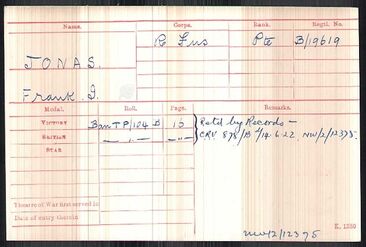 Name. Corps. Rank. Regtl. No.
R Fus Pte B/19619
JONAS.
Frank. I.
Medal. Roll. Page. Remarks.
VICTORY B/104 B 13 Retd by Records –
BRITISH — " — — " — CRV 878/B d/14.6.22. NW/2/12375.
STAR
Theatre of War first served in
Date of entry therein
NW/2/12375 K. 1380